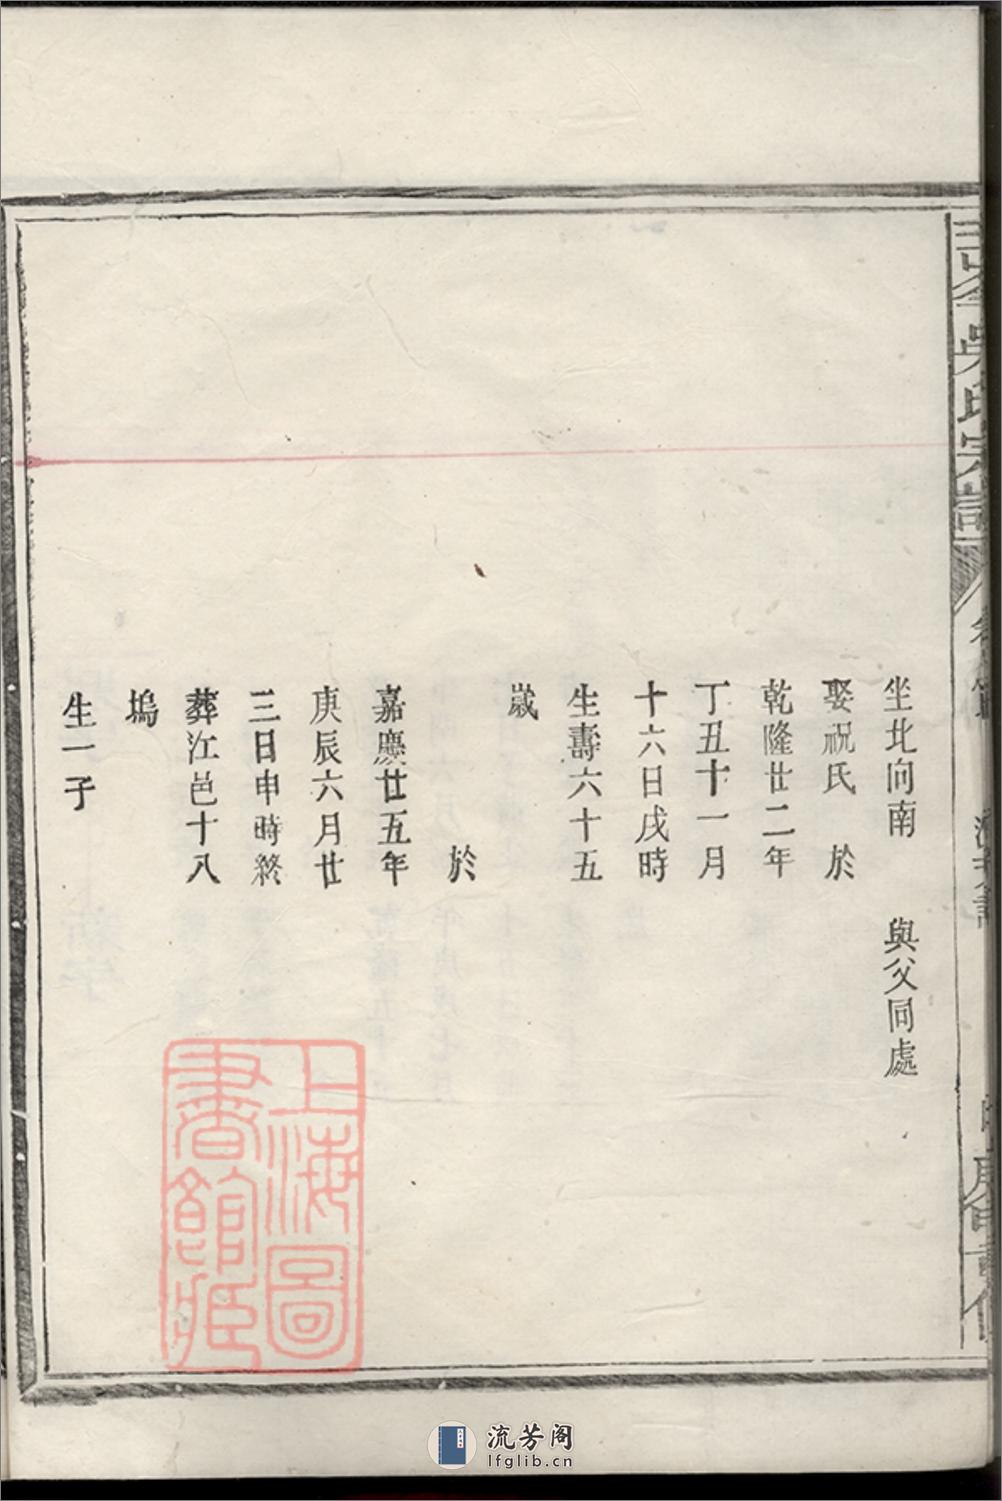 吳氏宗譜
坐北向南　與父同處
娶祝氏　於
乾隆廿二年
丁丑十一月
十六日戌時
生壽六十五
歲
於
嘉慶廿五年
庚辰六月廿
三日申時終
葬江邑十八
塢
生一子
上海圖
書館藏
流芳阁
lfglib.cn